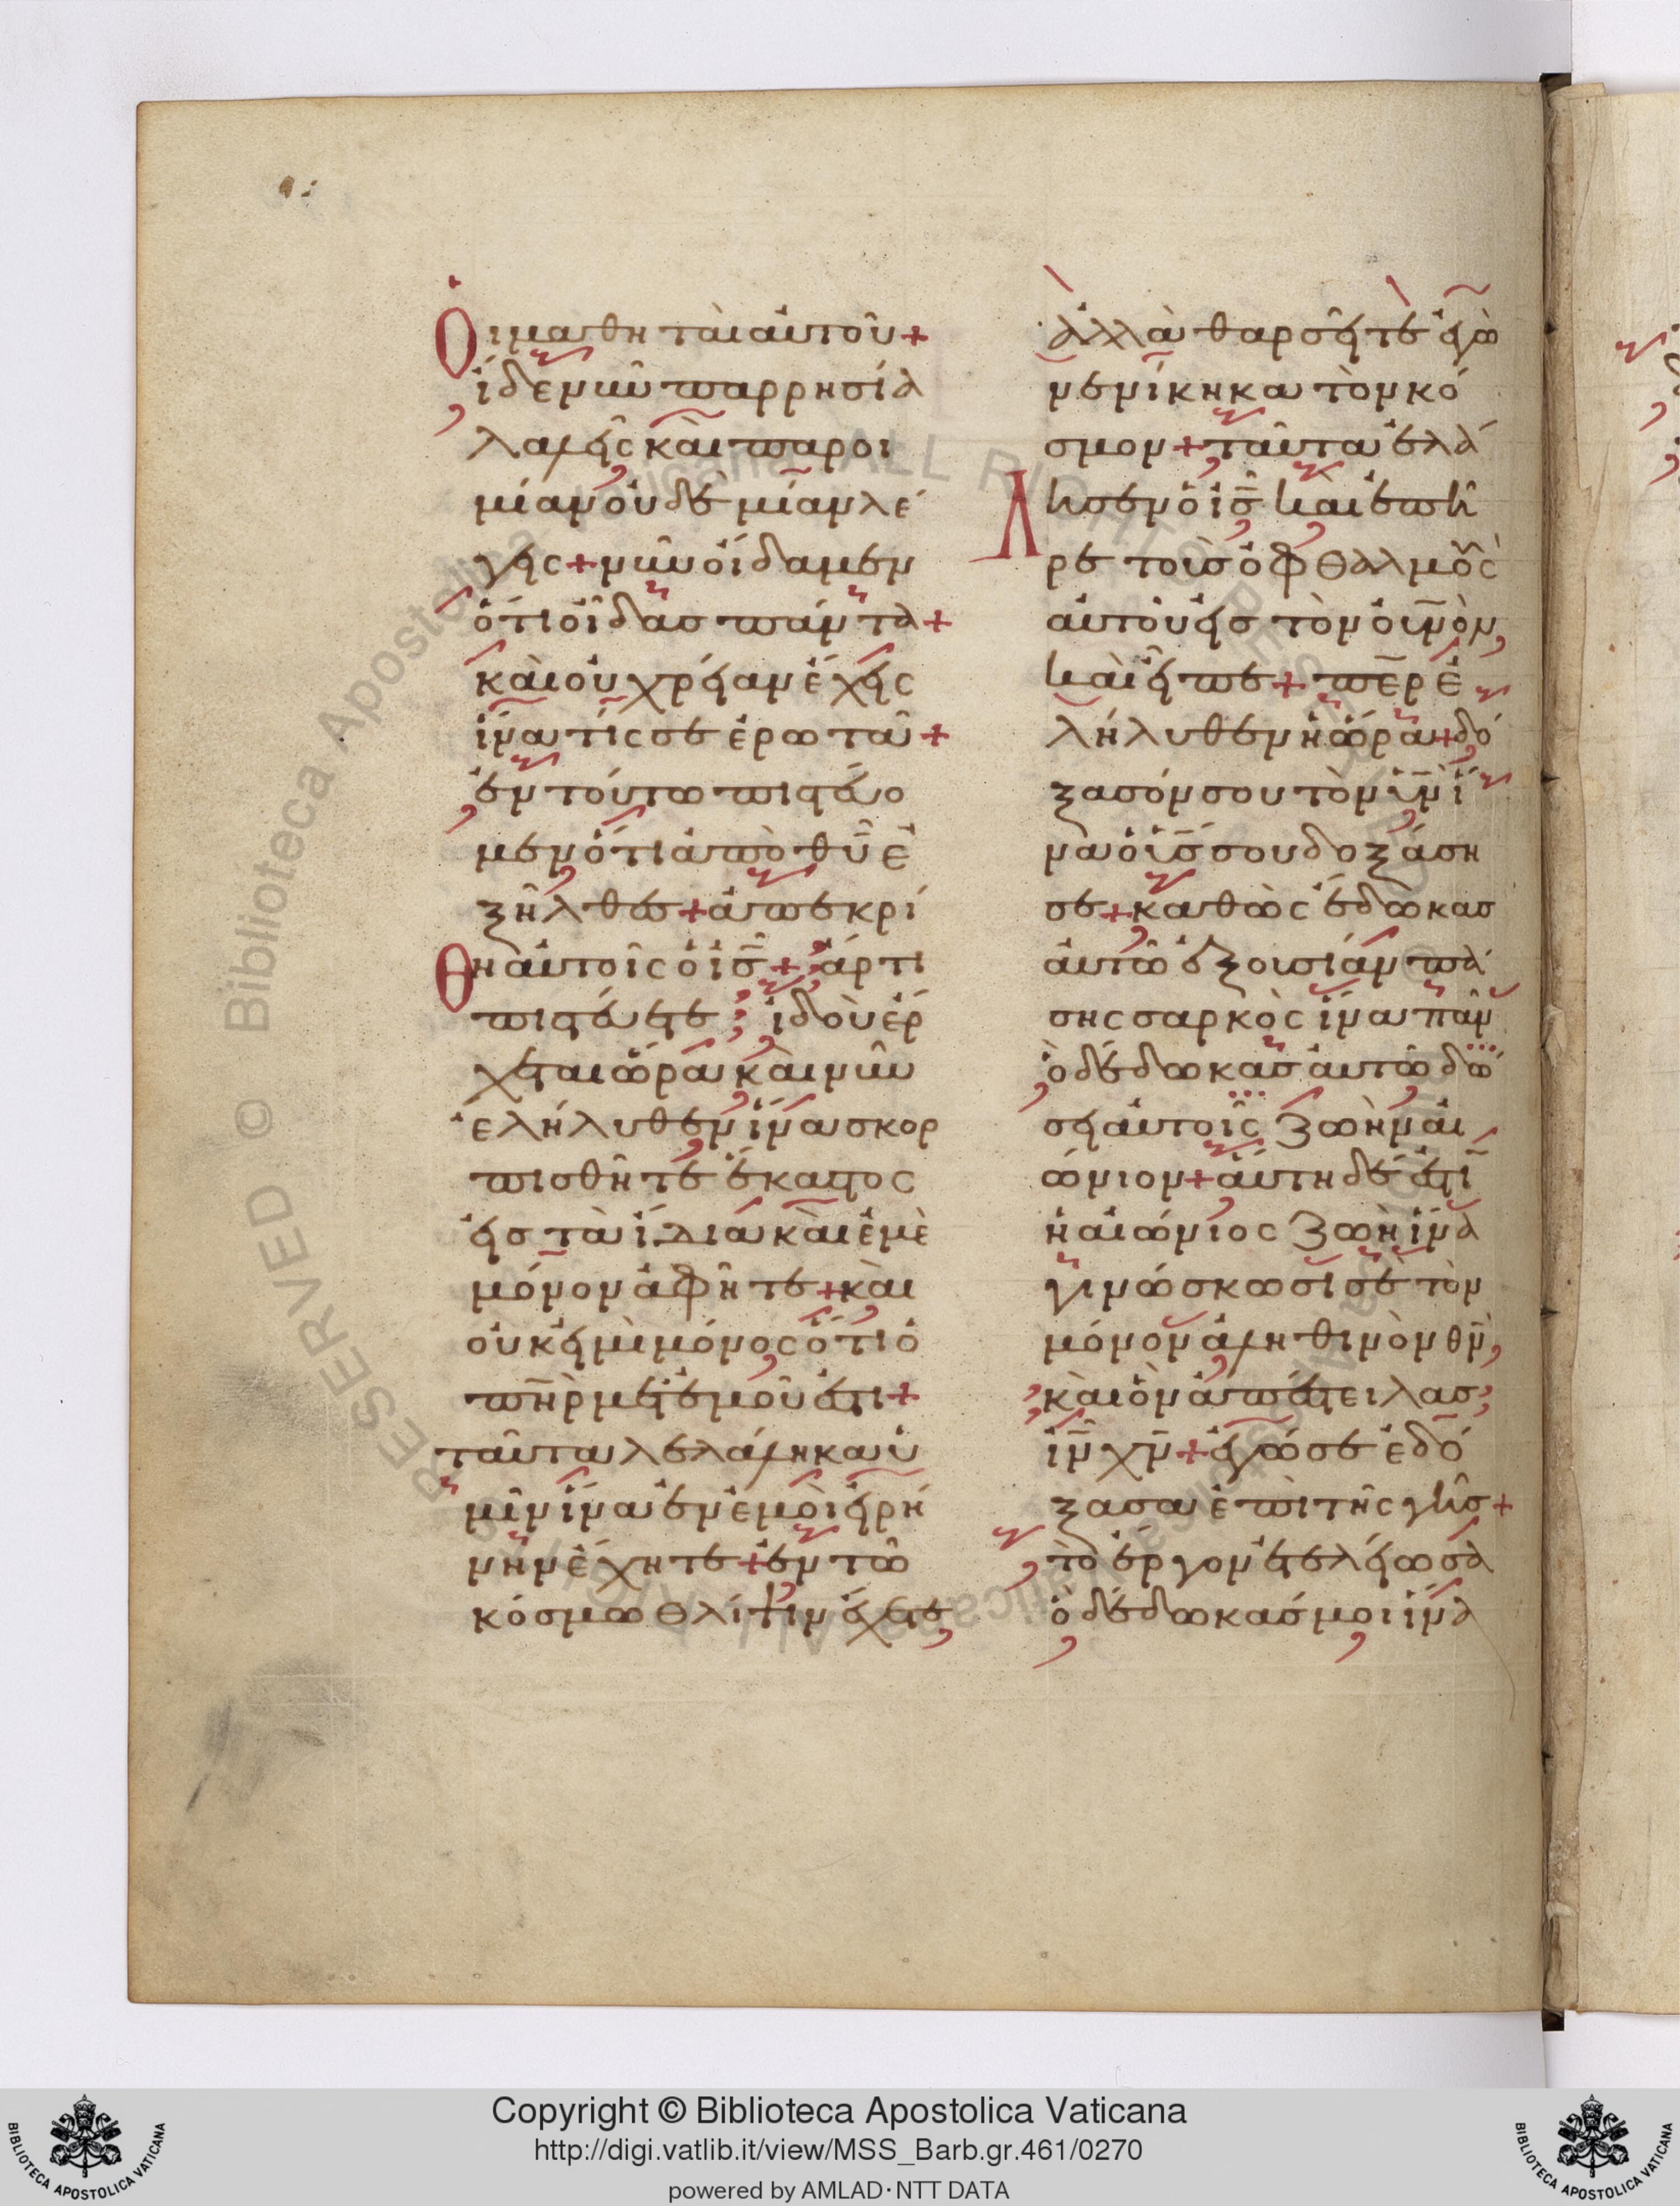 Οἱ μαθηταὶ αὐτοῦ +
ἴδε νῦν παρρησία
λαλεῖς καὶ παροι
μίαν οὐδὲ μίαν λέ
γεις + νῦν οἴδαμεν
ὅτι οἶδας πάντα +
καὶ οὐ χρείαν ἔχεις
ἵνα τίς σε ἐρωτᾶ +
ἐν τούτω πιστεύο
μεν ὅτι ἀπὸ θῦ ἐ
ξῆλθες + ἀπεκρί
θη αὐτοῖς ὁ ἰς + ἄρτι
πιστεύετε ; ἰδοὺ ἔρ
χεται ὥρα καὶ νῦν
ἐλήλυθεν ἵνα σκορ
πισθῆτε ἕκαστος
εἰς τὰ ἴδια καὶ ἐμὲ
μόνον ἀφῆτε + καὶ
οὐκ εἰμὶ μόνος ὅτι ὁ
πηρ μετ ἐμοῦ ἐστι +
ταῦτα λελάληκα ὑ
μῖν ἵνα ἐν ἐμοὶ εἰρή
νην ἔχητε + ἐν τῶ
κόσμω θλίψιν ἕξετε,
ἀλλὰ θαρσεῖτε ἐγὼ
νενίκηκα τὸν κό
σμον + ταῦτα ἐλά
λησεν ὁ ἰς καὶ ἐπῆ
ρε τοὺς ὀφθαλμοὺς
αὐτοῦ εἰς τὸν οὐνὸν,
καὶ εἶπε + περ ἐ
λήλυθεν ἡ ὥρα + δό
ξασόν σου τὸν υν ἵ
να ὁ υς σου δοξάση
σε + καθὼς ἔδωκας
αὐτῶ ἐξουσίαν πά
σης σαρκὸς ἵνα πᾶν
ὃ δέδωκας αὐτῶ δώ
σει αὐτοῖς ζωὴν αἰ
ώνιον + αὕτη δέ ἐστι
ἡ αἰώνιος ζωὴ ἵνα
γινώσκωσι σὲ τὸν
μόνον ἀληθινὸν θν,
καὶ ὃν ἀπέστειλας,
ιν χν + ἐγώ σε ἐδό
ξασα ἐπὶ τῆς γῆς +
τὸ ἔργον ἐτελείωσα
ὃ δέδωκάς μοι ἵνα
Copyright © Biblioteca Apostolica Vaticana
http://digi.vatlib.it/view/MSS_Barb.gr.461/0270
powered by AMLAD·NTT DATA